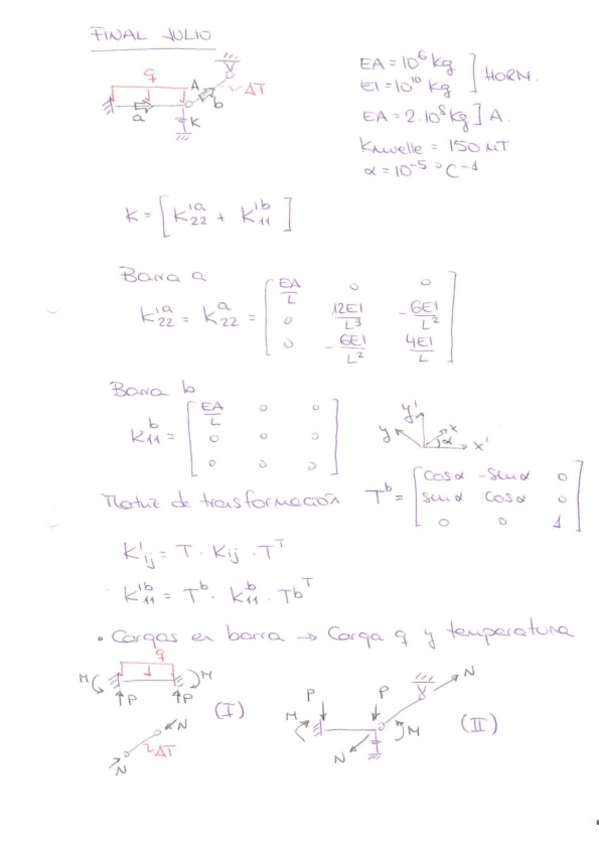 FINAL JULIO
q
A
ΔT
a
b
K
EA = 10⁶ Kg
EI = 10¹⁰ Kg
] HORM.
EA = 2·10⁸ Kg ] A.
Kmuelle = 150 MT
α = 10⁻⁵ °C⁻¹
K = [ K'ᵃ₂₂ + K'ᵇ₁₁ ]
Barra a
K'ᵃ₂₂ = Kᵃ₂₂ =
EA/L 0 0
0 12EI/L³ -6EI/L²
0 -6EI/L² 4EI/L
Barra b
Kᵇ₁₁ =
EA/L 0 0
0 0 0
0 0 0
y' y x α x'
Matriz de transformación Tᵇ =
cosα -senα 0
senα cosα 0
0 0 1
K'ij = T · Kij · Tᵀ
K'ᵇ₁₁ = Tᵇ · Kᵇ₁₁ · Tbᵀ
• Cargas en barra → Carga q y temperatura
q
M M
P P
(I)
N
ΔT
N
N
P P
M M
N
(II)